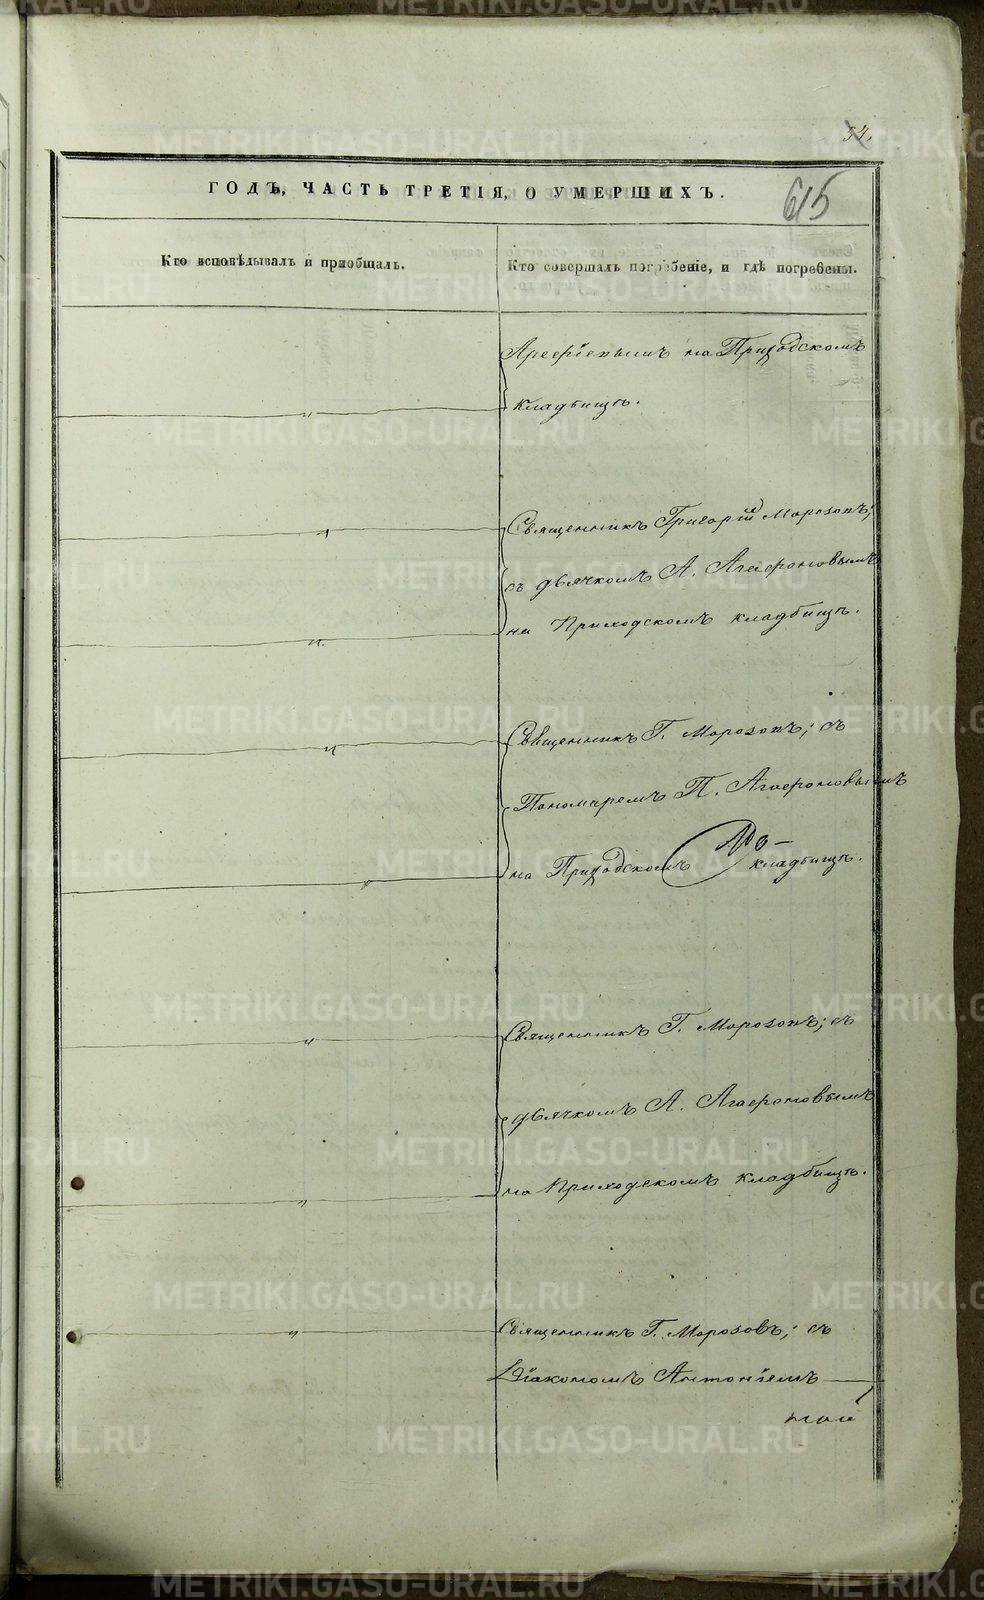 54.
615
ГОДЪ, ЧАСТЬ ТРЕТІЯ, О УМЕРШИХЪ.
Кто исповѣдывалъ и пріобщалъ.
Кто совершалъ погребеніе, и гдѣ погребены.
Арефіевымъ на Приходскомъ
кладбищѣ.
Священникъ Григорій Морозовъ;
съ дьячкомъ А. Агафоновымъ
на Приходскомъ кладбищѣ.
Священникъ Г. Морозовъ; съ
Пономаремъ П. Агафоновымъ
на Приходскомъ
кладбищѣ.
Священникъ Г. Морозовъ; съ
дьячкомъ А. Агафоновымъ
на Приходскомъ кладбищѣ.
Священникъ Г. Морозовъ; съ
Діакономъ Антоніемъ
METRIKI.GASO-URAL.RU